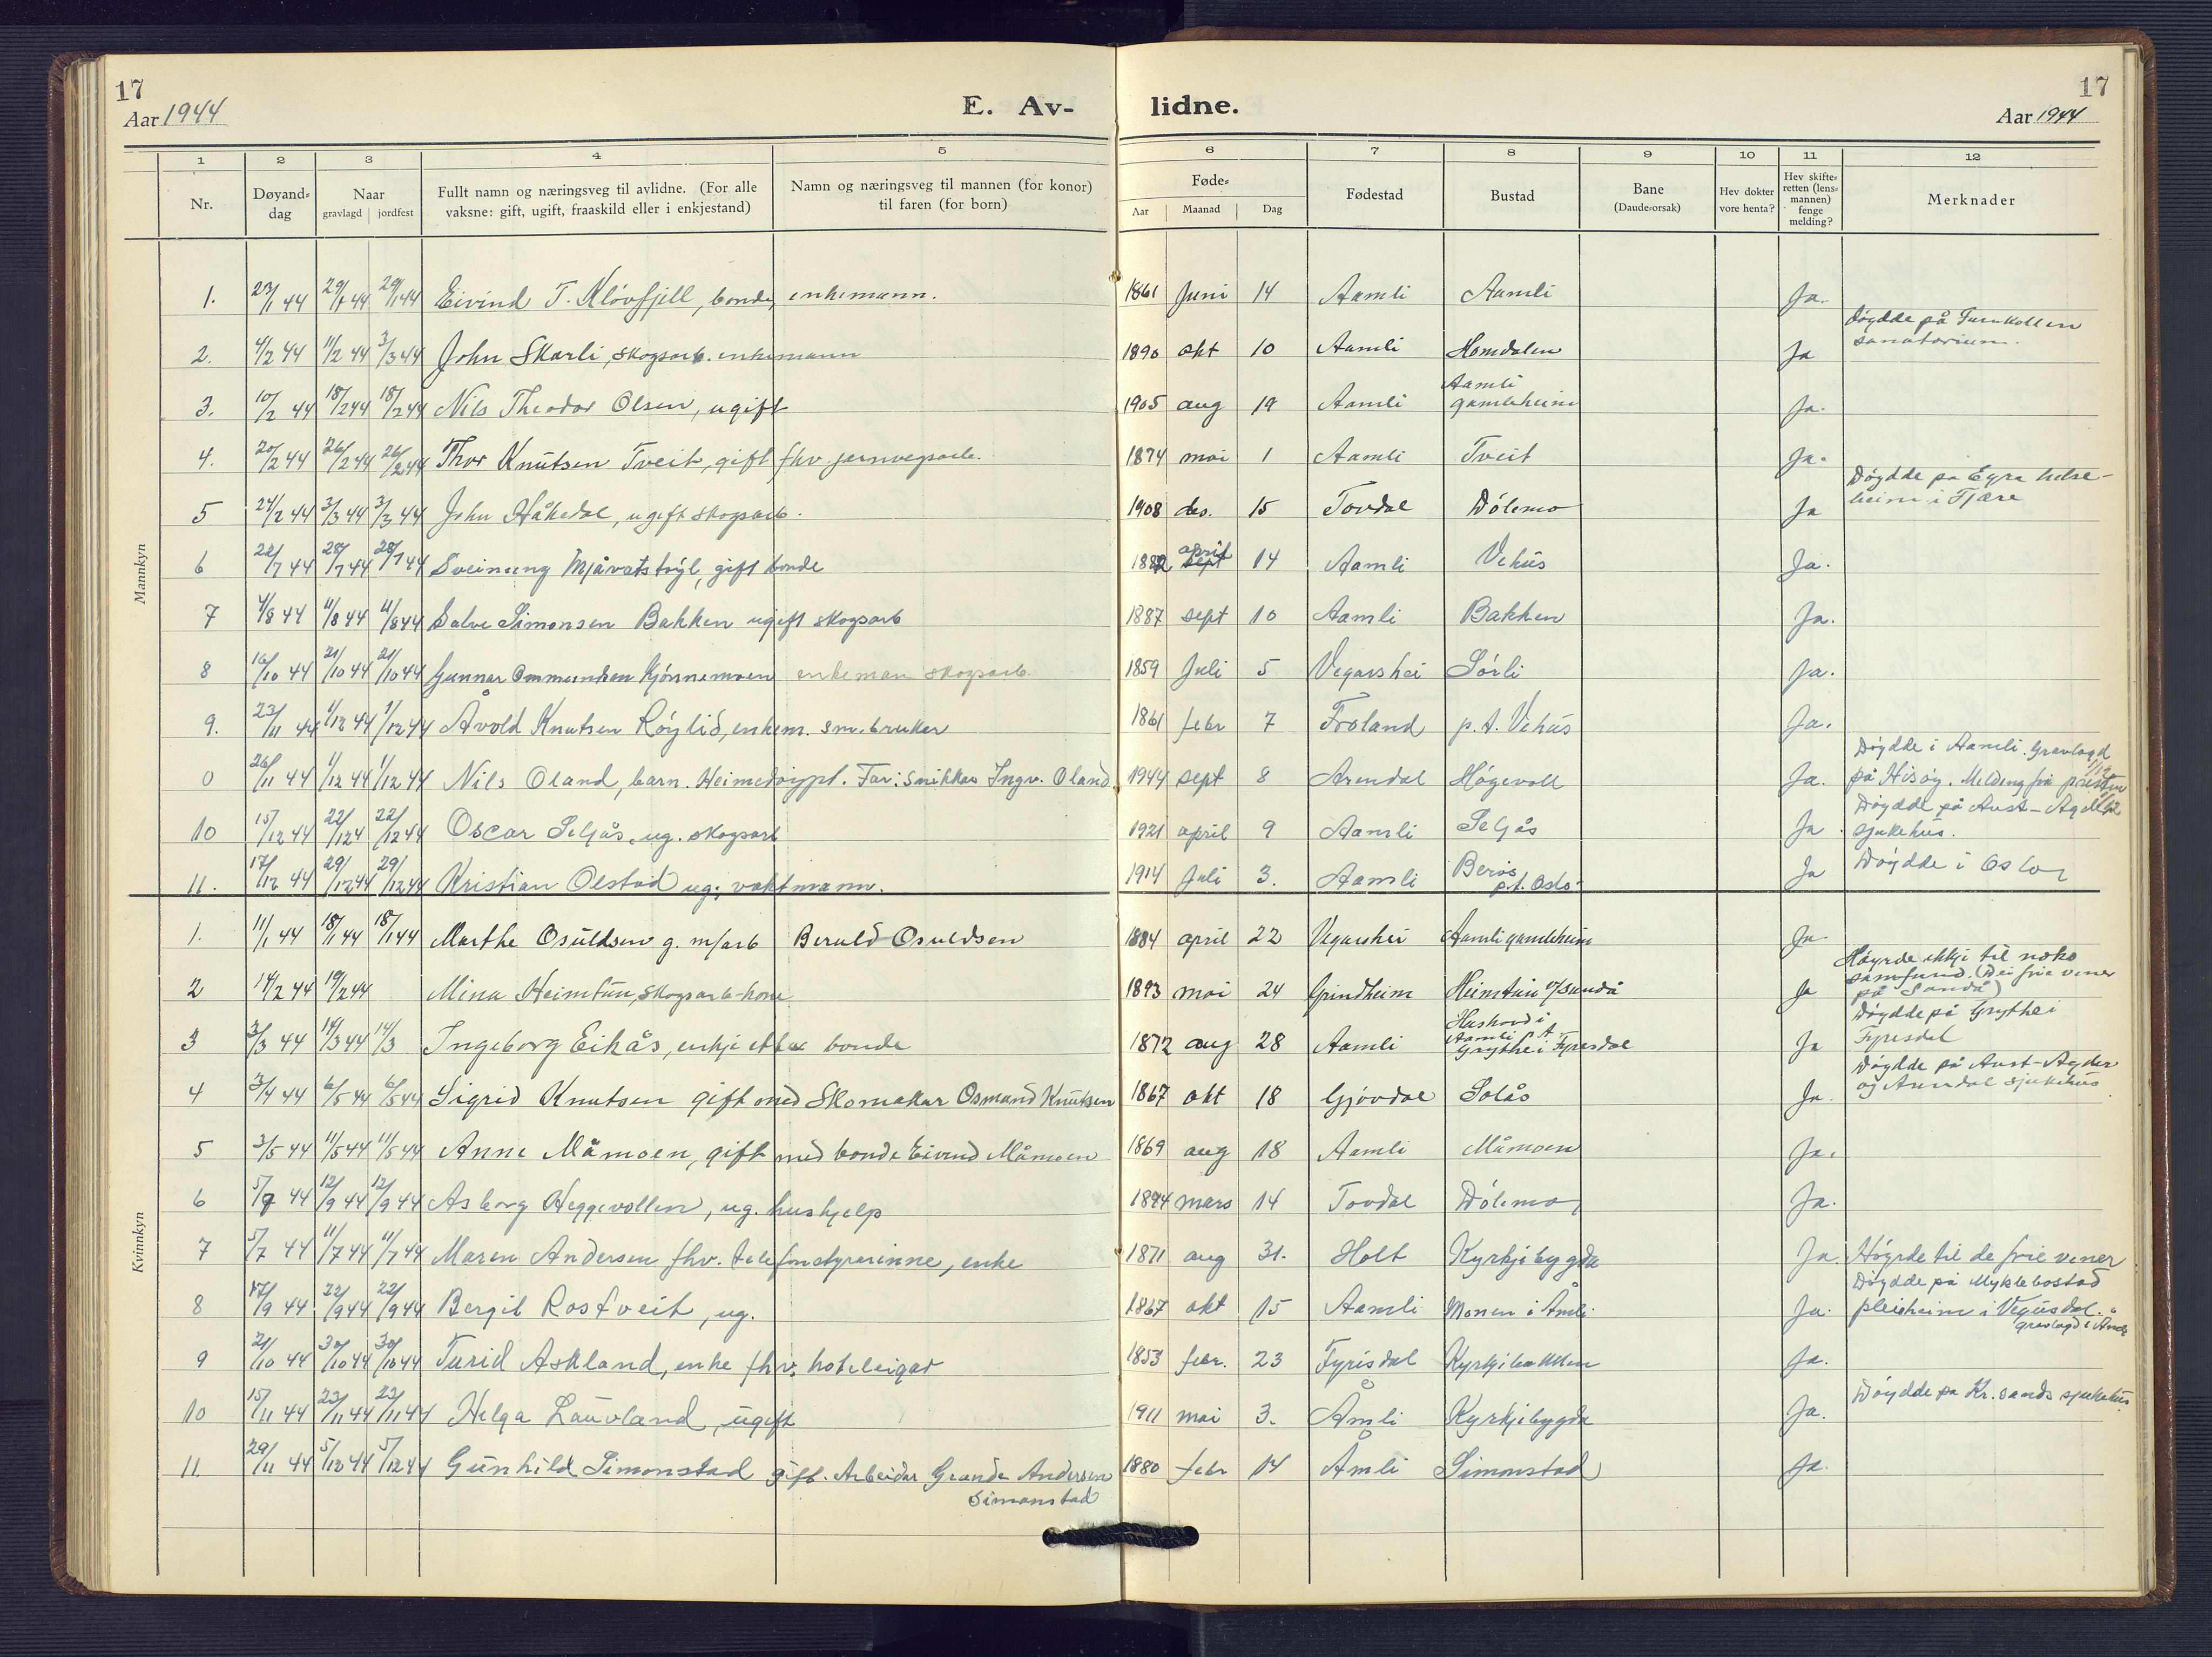 17
Aar 1944
E. Av-
lidne.
17
Aar 1944
1 2 3 4 5 6 7 8 9 10 11 12
Nr.
Døyand-
dag
Naar
gravlagd jordfest
Fullt namn og næringsveg til avlidne. (For alle
vaksne: gift, ugift, fraaskild eller i enkjestand)
Namn og næringsveg til mannen (for konor)
til faren (for born)
Føde-
Aar Maanad Dag
Fødestad
Bustad
Bane
(Daude-orsak)
Hev dokter
vore henta?
Hev skifte-
retten (lens-
mannen)
fenge
melding?
Merknader
Mannkyn
1. 23/1 44 29/1 44 29/1 44 Eivind T. Kløvfjell, bonde, enkemann. 1861 Juni 14 Aamli Aamli Ja.
2. 4/2 44 11/2 44 3/3 44 John Skarli, skogsarb. enkemann 1890 okt 10 Aamli Homdalen Ja
Døydde på Furukollen
sanatorium.
3. 10/2 44 18/2 44 18/2 44 Nils Theodor Olsen, ugift 1905 aug 19 Aamli Aamli
gamleheim Ja.
4. 20/2 44 26/2 44 26/2 44 Thor Knutsen Tveit, gift fhv jernvegsarb. 1874 mai 1 Aamli Tveit Ja.
5 24/2 44 3/3 44 3/3 44 John Håkedal, ugift skogsarb. 1908 des. 15 Tovdal Dølemo Ja
Døydde på Eyra helse-
heim i Fjære
6 22/7 44 28/7 44 28/7 44 Sveinung Mjåvatstøyl, gift bonde 1882 sept april 14 Aamli Vehus Ja.
7 4/8 44 11/8 44 11/8 44 Salve Simonsen Bakken ugift skogsarb 1887 sept 10 Aamli Bakken Ja.
8 16/10 44 21/10 44 21/10 44 Gunnar Ommundsen Kjørnemoen enkeman skogsarb. 1859 Juli 5 Vegarshei Sørli Ja.
9. 23/11 44 1/12 44 1/12 44 Åvold Knutsen Røylid, enkem. sm.bruker 1861 febr 7 Froland p.t. Vehus Ja.
0 26/11 44 1/12 44 1/12 44 Nils Oland, barn. Heimedøypt. Far: snikkar Ingv. Oland 1944 sept 8 Arendal Høgevoll Ja.
Døydde i Aamli. Gravlagd
på Hisøy. Melding frå presten
10 15/12 44 22/12 4 22/12 44 Oscar Seljås, ug. skogsarb 1921 april 9 Aamli Seljås Ja
Døydde på Aust-Agder
sjukehus.
11. 17/12 44 29/12 44 29/12 44 Kristian Olstad ug. vaktmann. 1914 Juli 3. Aamli
p.t. Oslo Ja Døydde i Oslo
Kvinnkyn
1. 11/1 44 18/1 44 18/1 44 Marthe Osuldsen g. m/arb Beruld Osuldsen 1884 april 22 Vegarshei Aamli gamleheim Ja
2 14/2 44 19/2 44 Mina Heimtun, skogsarb-kone 1893 mai 24 Grindheim Heimtun v/Sandå Ja
Høyrde ikkje til noko
samfund. (Dei frie vener
på Sandå)
3 3/3 44 14/3 44 14/3 Ingeborg Eikås, enkje etter bonde 1872 aug 28 Aamli
Aamli p.t.
Grythei Fyresdal Ja
Døydde på Grythei
Fyresdal
4 3/4 44 6/5 44 6/5 44 Sigrid Knutsen gift med Skomakar Osmund Knutsen 1867 okt 18 Gjøvdal Solås Ja.
Døydde på Aust-Agder
og Arendal sjukehus
5 3/5 44 11/5 44 11/5 44 Anne Måmoen, gift med bonde Eivind Måmoen 1869 aug 18 Aamli Måmoen Ja.
6 5/9 44 12/9 44 12/9 44 Asborg Heggevollen, ug. hushjelp 1894 mars 14 Tovdal Dølemo Ja.
7 5/7 44 11/7 44 11/7 44 Maren Andersen fhv. telefonstyrarinne, enke 1871 aug 31. Holt Kyrkjebygda Ja. Høyrde til de frie vener
8 17/9 44 22/9 44 22/9 44 Bergit Rostveit, ug. 1867 okt 15 Aamli Monen i Åmli. Ja.
Døydde på Myklebostad
pleieheim i Vegusdal.
gravlagd i Åmli
9 21/10 44 30/10 44 30/10 44 Turid Askland, enke fhv. hoteleigar 1853 febr. 23 Fyrisdal Kyrkjebakken Ja.
10 15/11 44 23/11 44 23/11 44 Helga Lauvland, ugift 1911 mai 3. Åmli Kyrkjebygda Ja.
Døydde på Kr.sands sjukehus
11. 29/11 44 5/12 44 5/12 44 Gunhild Simonstad gift. Arbeidar Graade Andersen
Simonstad 1880 febr 14 Åmli Simonstad Ja.